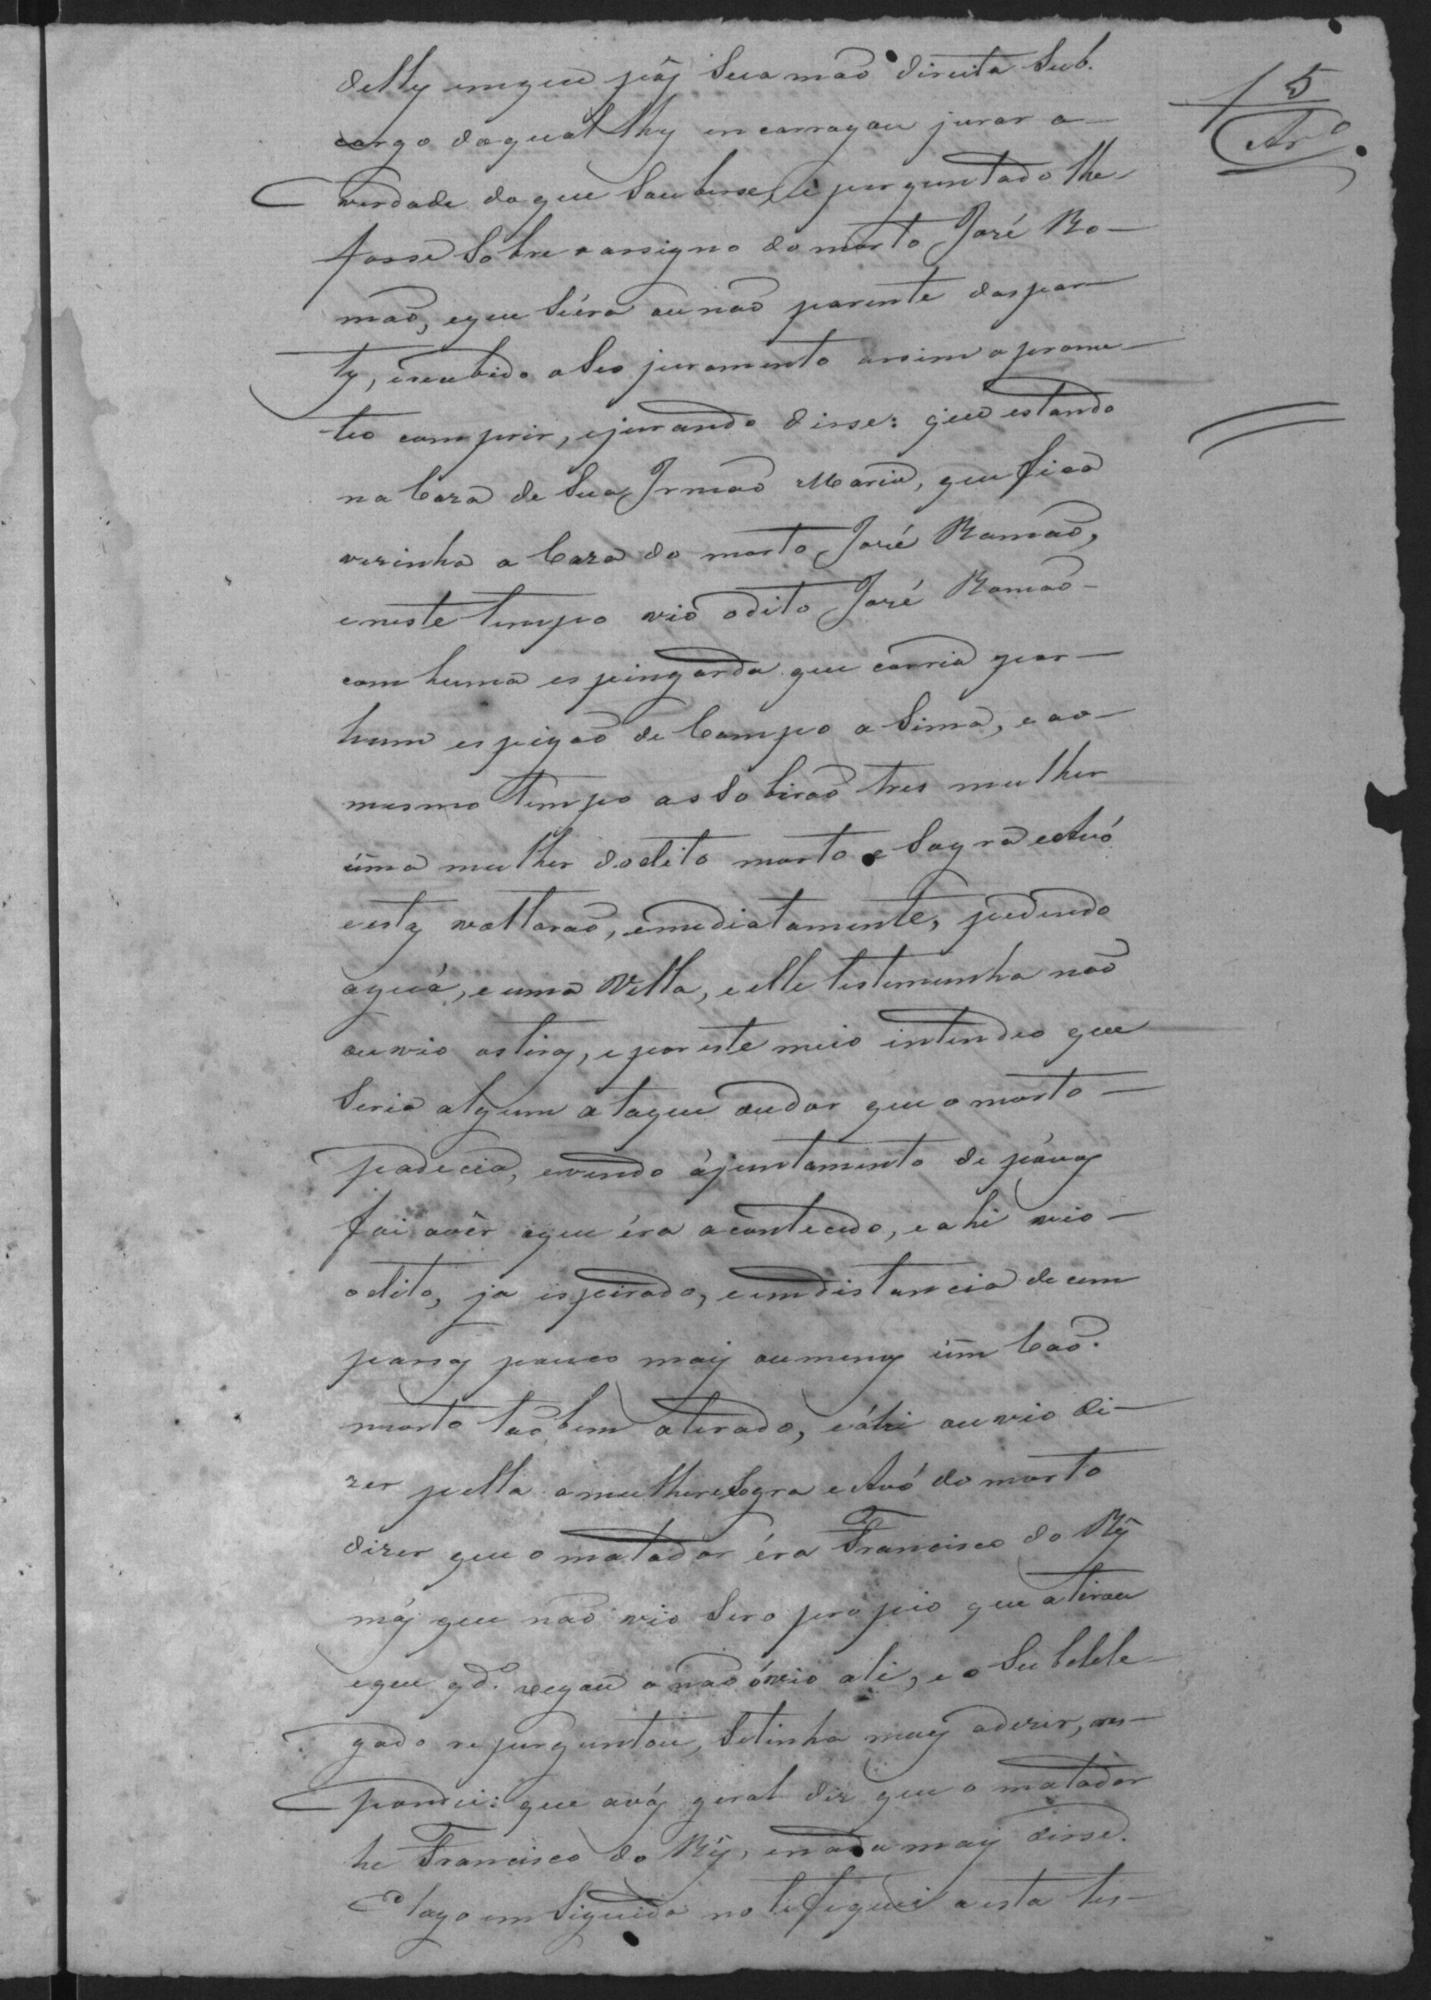 5
Arº
delly em que pôs Sua mão direita Sub.
cargo do qual lhy encarragou jurar a
verdade do que Soubese, e perguntado lhe
fosse Sobre o assigno do morto José Ro-
mão, e que Si éra ou não parente das par-
ty, e recebido o Seo juramento assim o prome-
teo comprir, e jurando disse: que estando
na Caza de Sua Irmão Maria, que fica
vizinha a Caza do morto José Ramão,
e neste tempo vio o dito José Romão
com huma espingarda que corria por
hum espigão de Campo a Sima, e ao
mesmo tempo as Sobirão tres mulher
uma mulher do dito morto e Sogra e Avó
e esty voltarão, emediatamente, pedindo
aguá, e uma Vella, e elle testemunha não
ouvio os tiros, e por este meio intendeo que
Seria algum ataque ou dor que o morto
padecia, e vendo ájuntamento de póvos
foi avêr o que éra acontecido, e ahi vio
o dito, ja ispirado, e em distancia de cem
passos pouco mais ou menos um Cão
morto tão bem atirado, e áhi ouvio di-
zer pella a mulher e Sogra e Avó do morto
dizer que o matador éra Francisco do Ry
más que não vio Ser o propio que atirou
e que qdº. xegou o não ó vio ali, e o Subdele-
gado re purguntou, Se tinha mais a dizer, res-
pondei: que a vóz geral diz que o matador
he Francisco do Ry, e nada mais disse.
E logo em Siguida notefiquei a esta tes-